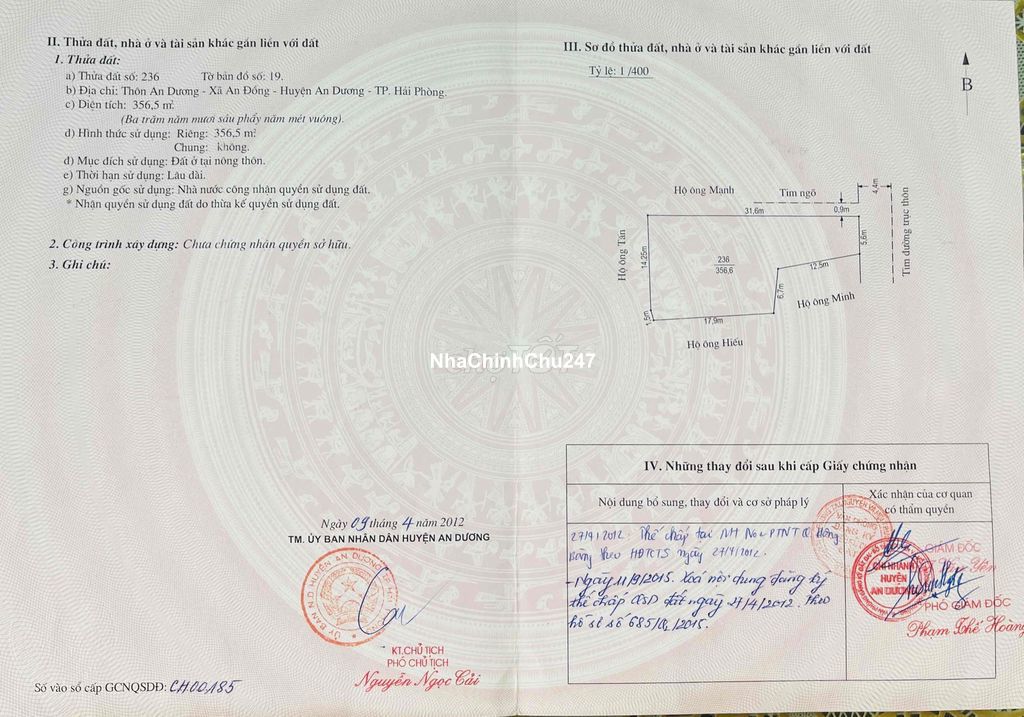 II. Thửa đất, nhà ở và tài sản khác gắn liền với đất
1. Thửa đất:
a) Thửa đất số: 236 Tờ bản đồ số: 19.
b) Địa chỉ: Thôn An Dương - Xã An Đồng - Huyện An Dương - TP. Hải Phòng.
c) Diện tích: 356,5 m²
(Ba trăm năm mươi sáu phẩy năm mét vuông).
d) Hình thức sử dụng: Riêng: 356,5 m²
Chung: không.
đ) Mục đích sử dụng: Đất ở tại nông thôn.
e) Thời hạn sử dụng: Lâu dài.
g) Nguồn gốc sử dụng: Nhà nước công nhận quyền sử dụng đất.
* Nhận quyền sử dụng đất do thừa kế quyền sử dụng đất.
2. Công trình xây dựng: Chưa chứng nhận quyền sở hữu.
3. Ghi chú:
Ngày 09 tháng 4 năm 2012
TM. ỦY BAN NHÂN DÂN HUYỆN AN DƯƠNG
KT.CHỦ TỊCH
PHÓ CHỦ TỊCH
Nguyễn Ngọc Cải
Số vào sổ cấp GCNQSDĐ: CH00185
III. Sơ đồ thửa đất, nhà ở và tài sản khác gắn liền với đất
Tỷ lệ: 1/400
B
Hộ ông Mạnh
Tim ngõ
4,4m
31,6m
0,9m
Hộ ông Tấn
14,25m
236
356,6
5,6m
Tim đường trục thôn
12,5m
6,7m
Hộ ông Minh
1,5m
17,9m
Hộ ông Hiếu
NhaChinhChu247
IV. Những thay đổi sau khi cấp Giấy chứng nhận
Nội dung bổ sung, thay đổi và cơ sở pháp lý
Xác nhận của cơ quan
có thẩm quyền
27/4/2012. Thế chấp tại NH No&PTNT Q. Hồng
Bàng theo HĐTCTS ngày 27/4/2012.
- Ngày 11/9/2015. Xoá nội dung đăng ký
thế chấp QSD đất ngày 27/4/2012. Theo
hồ sơ số 685/ /2015.
GIÁM ĐỐC
CHI NHÁNH
HUYỆN
AN DƯƠNG
PHÓ GIÁM ĐỐC
Phạm Thế Hoàng